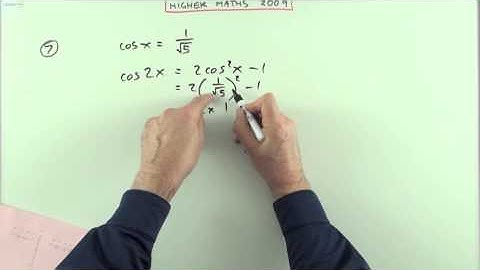 HIGHER MATHS 2009
7 cos x = 1/√5
cos 2x = 2 cos²x − 1
= 2(1/√5)² − 1
x 1